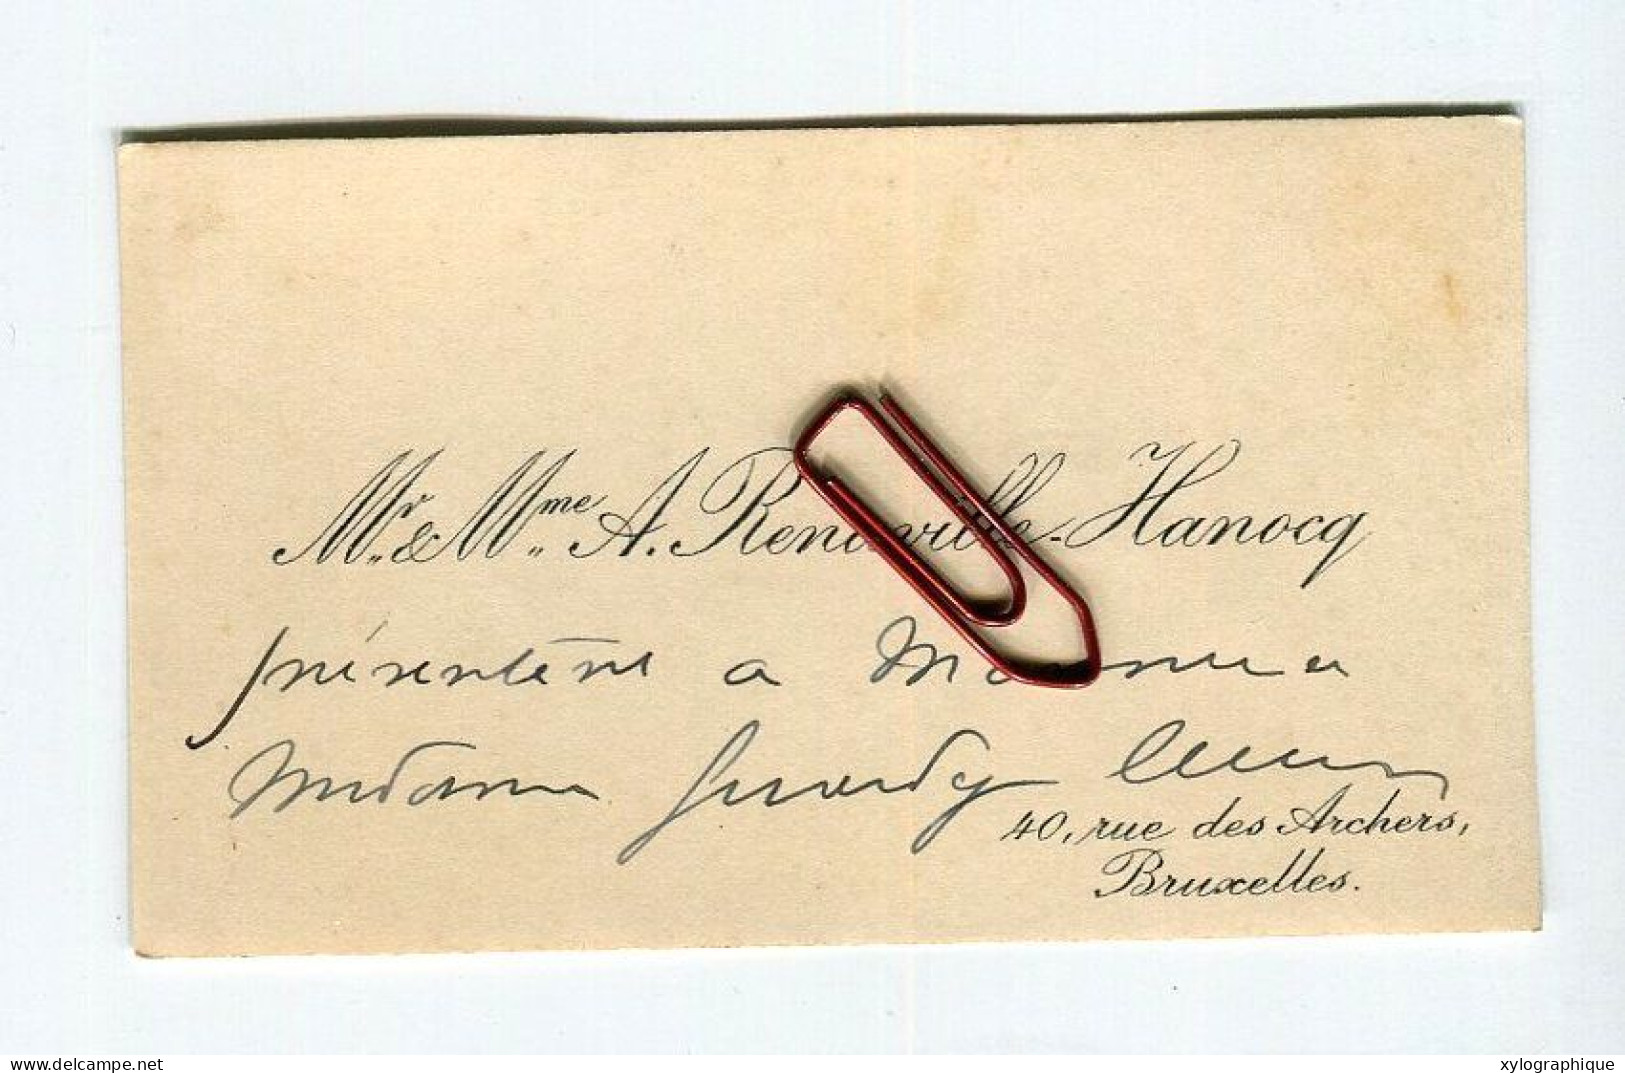 Mr. & Mme. A. Renauville-Hanocq
présentent a Monsieur
Madame leurs
40, rue des Archers,
Bruxelles.
www.delcampe.net xylographique